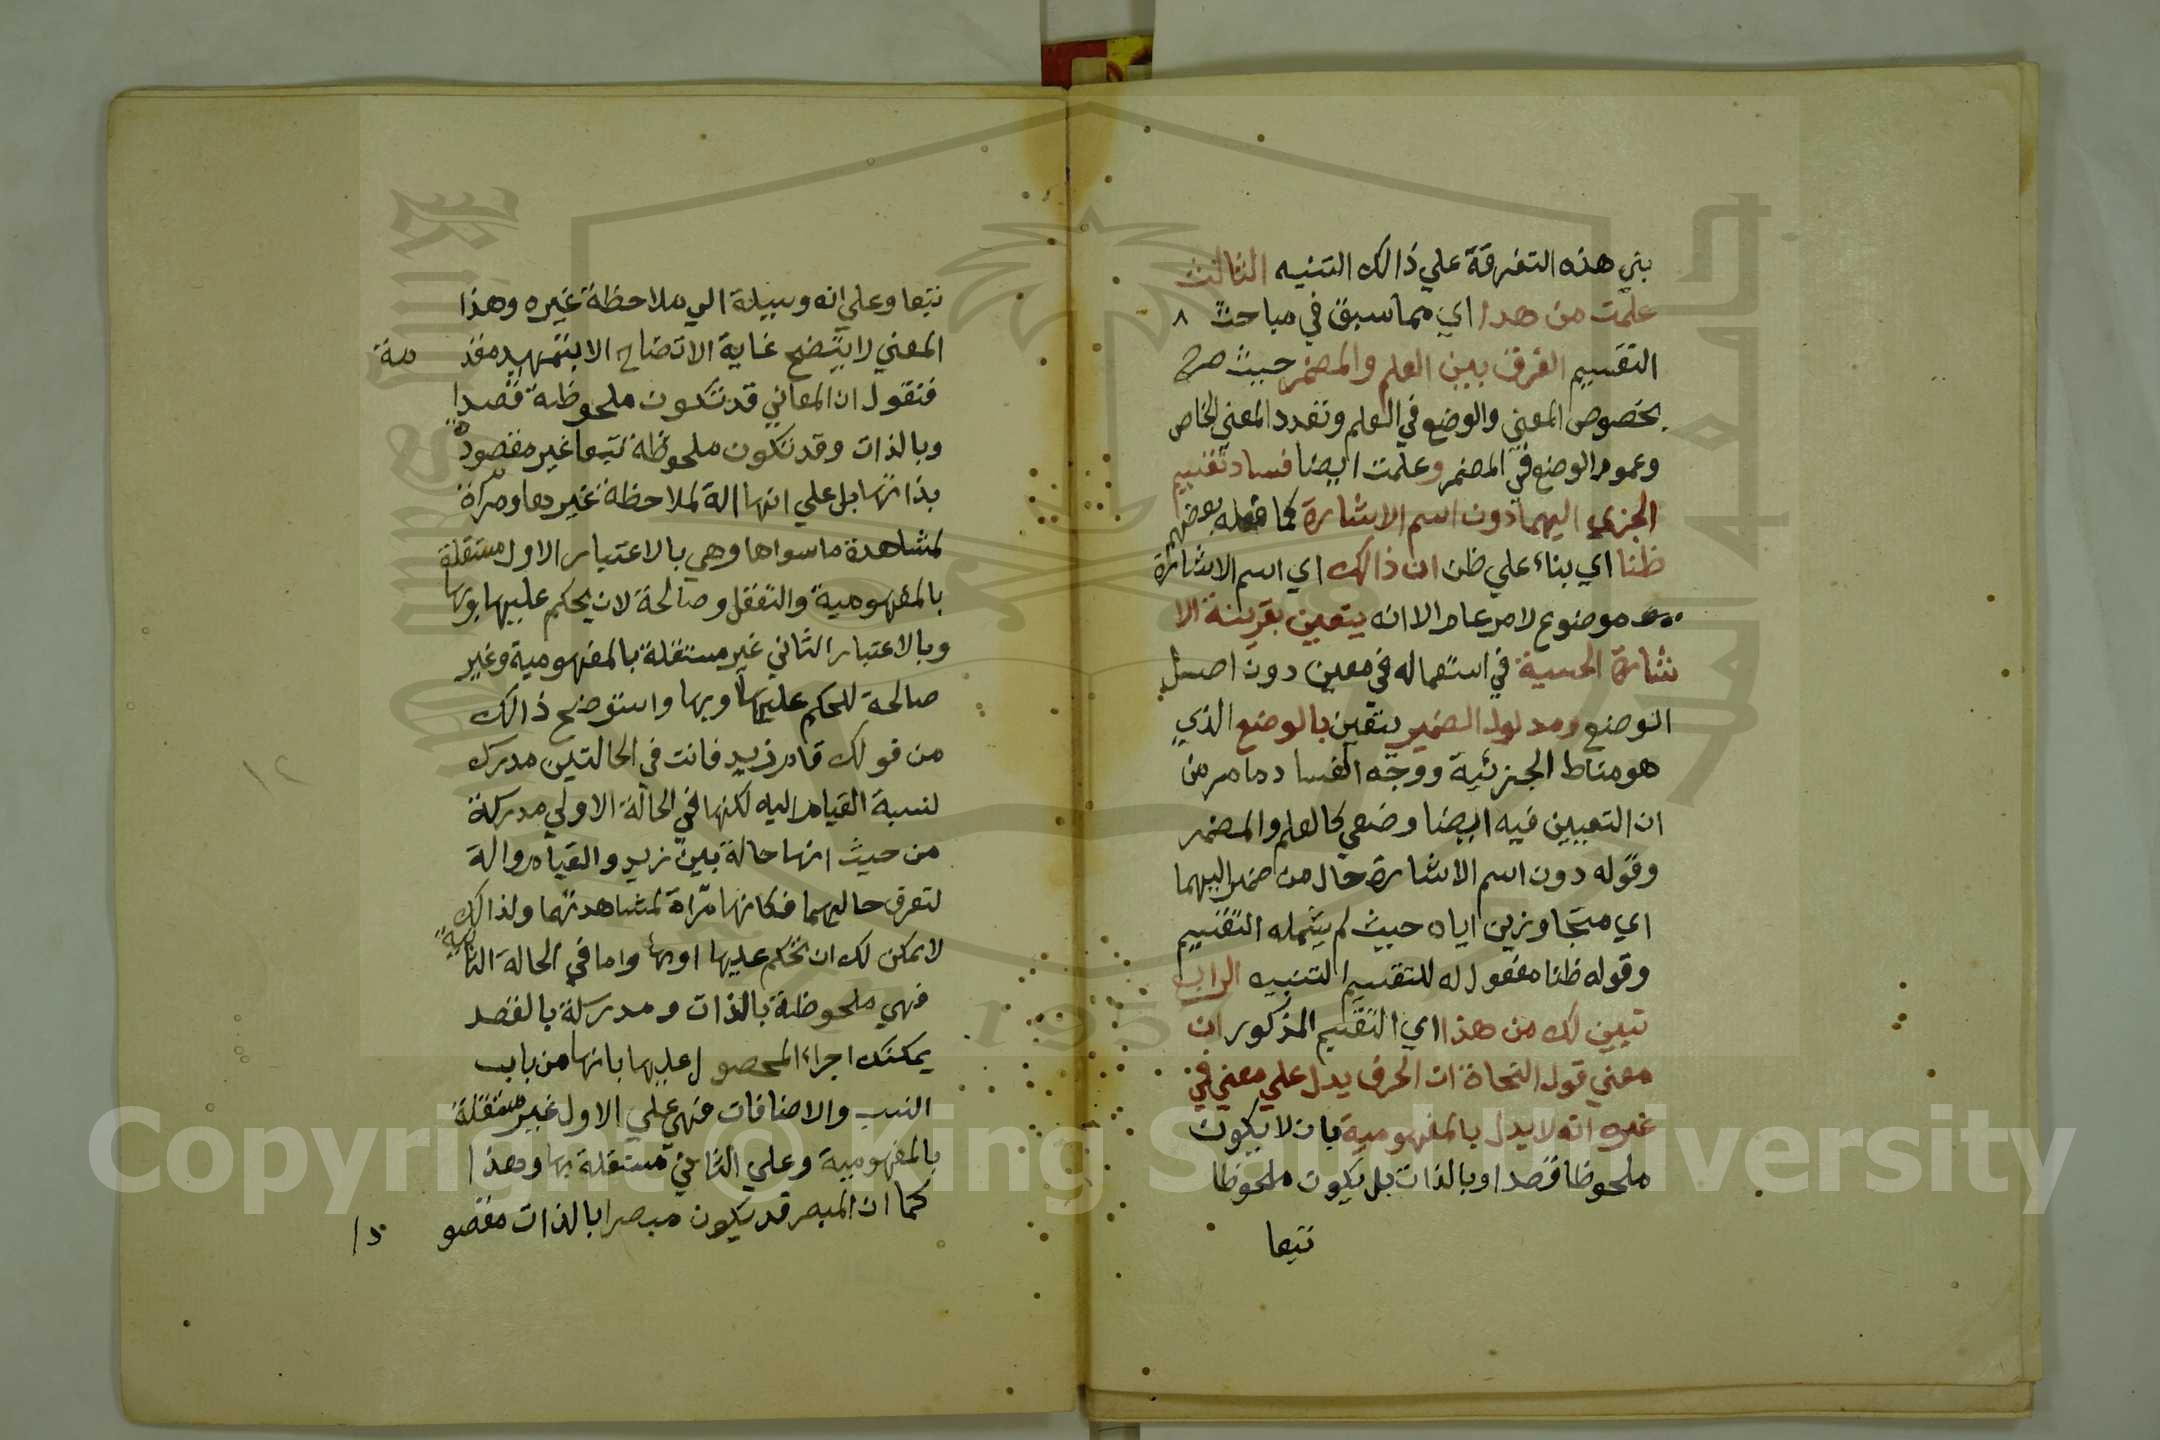 بني هذه التفرقة علي ذالك التنبيه الثالث
علمت من هدا اي مما سبق في مباحث ٨
التقسيم الفرق بين العلم والمضمر حيث صرح
بخصوص المعني والوضع في العلم وتعدد المعني الخاص
وعموم الوضع في المضمر وعلمت ايضا فساد تقسيم
الجزي اليهما دون اسم الاشارة كما فعله بعضهم
ظنا اي بناء علي ظن ان ذالك اي اسم الاشارة
موضوع لامر عام الا انه يتعين بقرينة الا
شارة الحسية في استعماله في معين دون اصل
الوضع ومدلول الضمير يتعين بالوضع الذي
هو مناط الجزئية ووجه الفساد ما مر من
ان التعيين فيه ايضا وضعي كالعلم والمضمر
وقوله دون اسم الاشارة حال من ضمير اليهما
اي متجاوزين اياه حيث لم يشمله التقسيم
وقوله ظنا مفعول له للتقسيم التنبيه الرابع
تبين لك من هذا اي التقسيم المذكور ان
معني قول النحاة ان الحرف يدل علي معني في
غيره انه لا يدل بالمفهومية بان لا يكون
ملحوظا قصدا وبالذات بل يكون ملحوظا
تبعا
تبعا وعلي انه وسيلة الي ملاحظة غيره وهذا
المعني لا يتضح غاية الاتضاح الا بتمهيد مقد مة
فنقول ان المعاني قد تكون ملحوظة قصدا
وبالذات وقد تكون ملحوظة تبعا غير مقصودة
بذاتها بل علي انها الة لملاحظة غيرها ومراة
لمشاهدة ما سواها وهي بالاعتبار الاول مستقلة
بالمفهومية والتعقل وصالحة لان يحكم عليها وبها
وبالاعتبار الثاني غير مستقلة بالمفهومية وغير
صالحة للحكم عليها وبها واستوضح ذالك
من قولك قام زيد فانت في الحالتين مدرك
لنسبة القيام اليه لكنها في الحالة الاولي مدركة
من حيث انها حالة بين زيد والقيام والة
لتعرف حاليهما فكانها مراة لمشاهدتهما ولذالك
لا يمكن لك ان تحكم عليها او بها واما في الحالة الثانية
فهي ملحوظة بالذات ومدركة بالقصد
يمكنك اجراء المحصول عليها بانها من باب
النسب والاضافات فهي علي الاول غير مستقلة
بالمفهومية وعلي الثاني مستقلة بها وهذا
كما ان المبصر قد يكون مبصرا بالذات مقصو دا
١٢
Copyright © King Saud University
1957